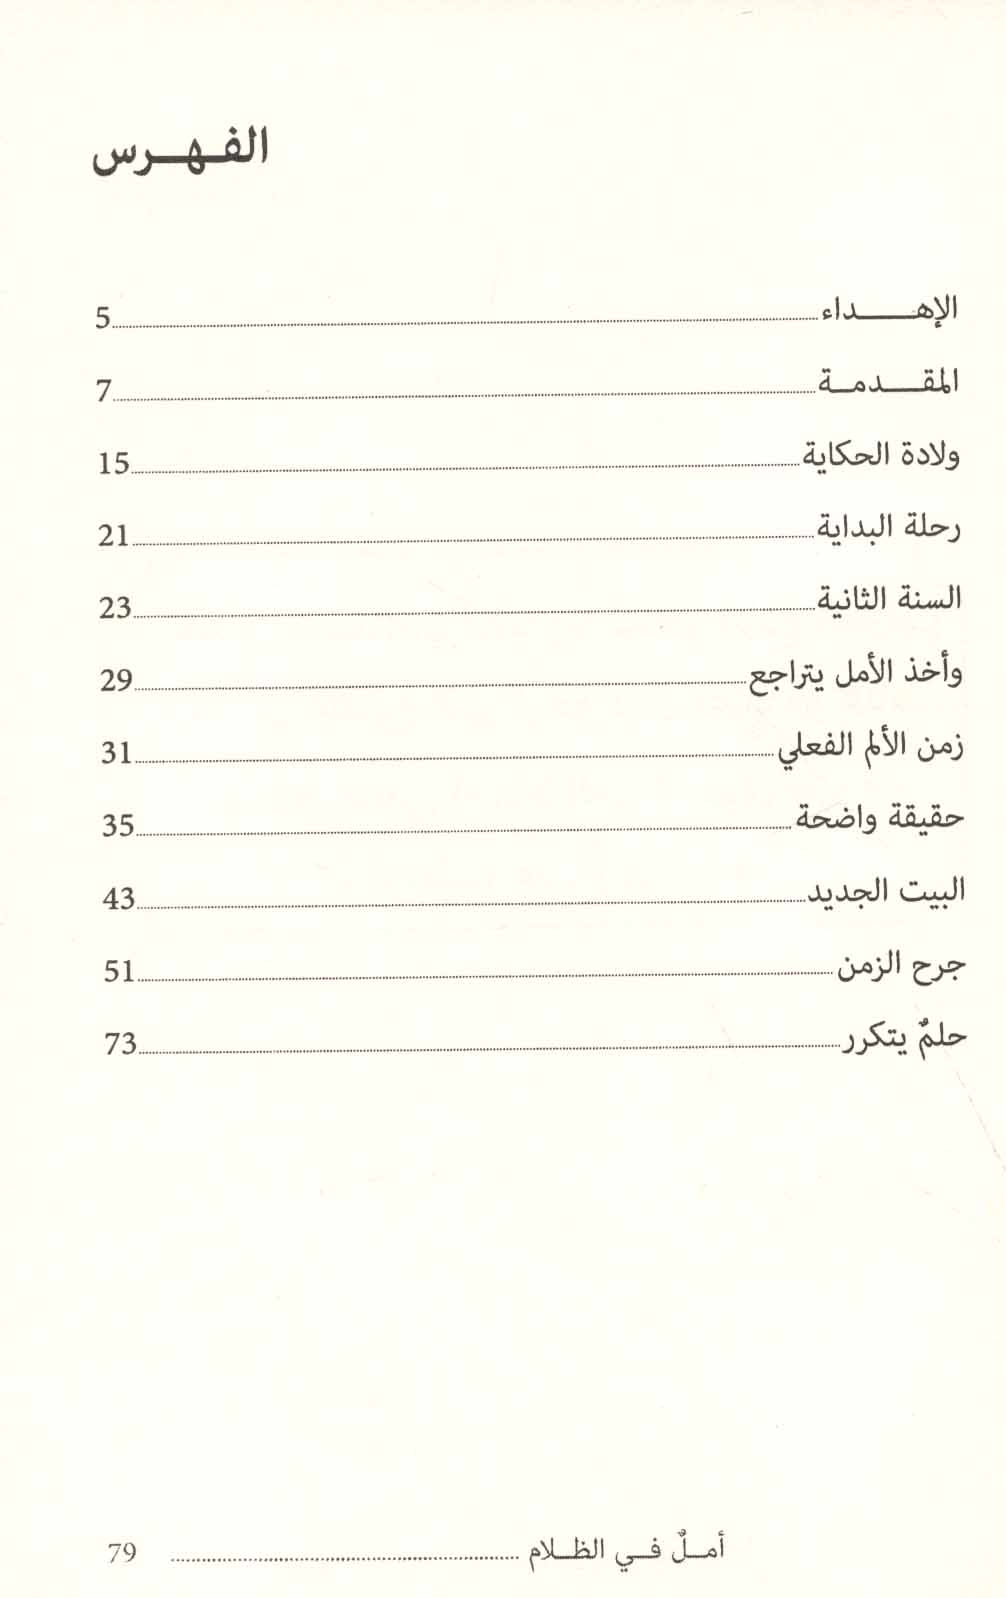 الفهرس
الإهداء 5
المقدمة 7
ولادة الحكاية 15
رحلة البداية 21
السنة الثانية 23
وأخذ الأمل يتراجع 29
زمن الألم الفعلي 31
حقيقة واضحة 35
البيت الجديد 43
جرح الزمن 51
حلمٌ يتكرر 73
أملٌ في الظلام 79